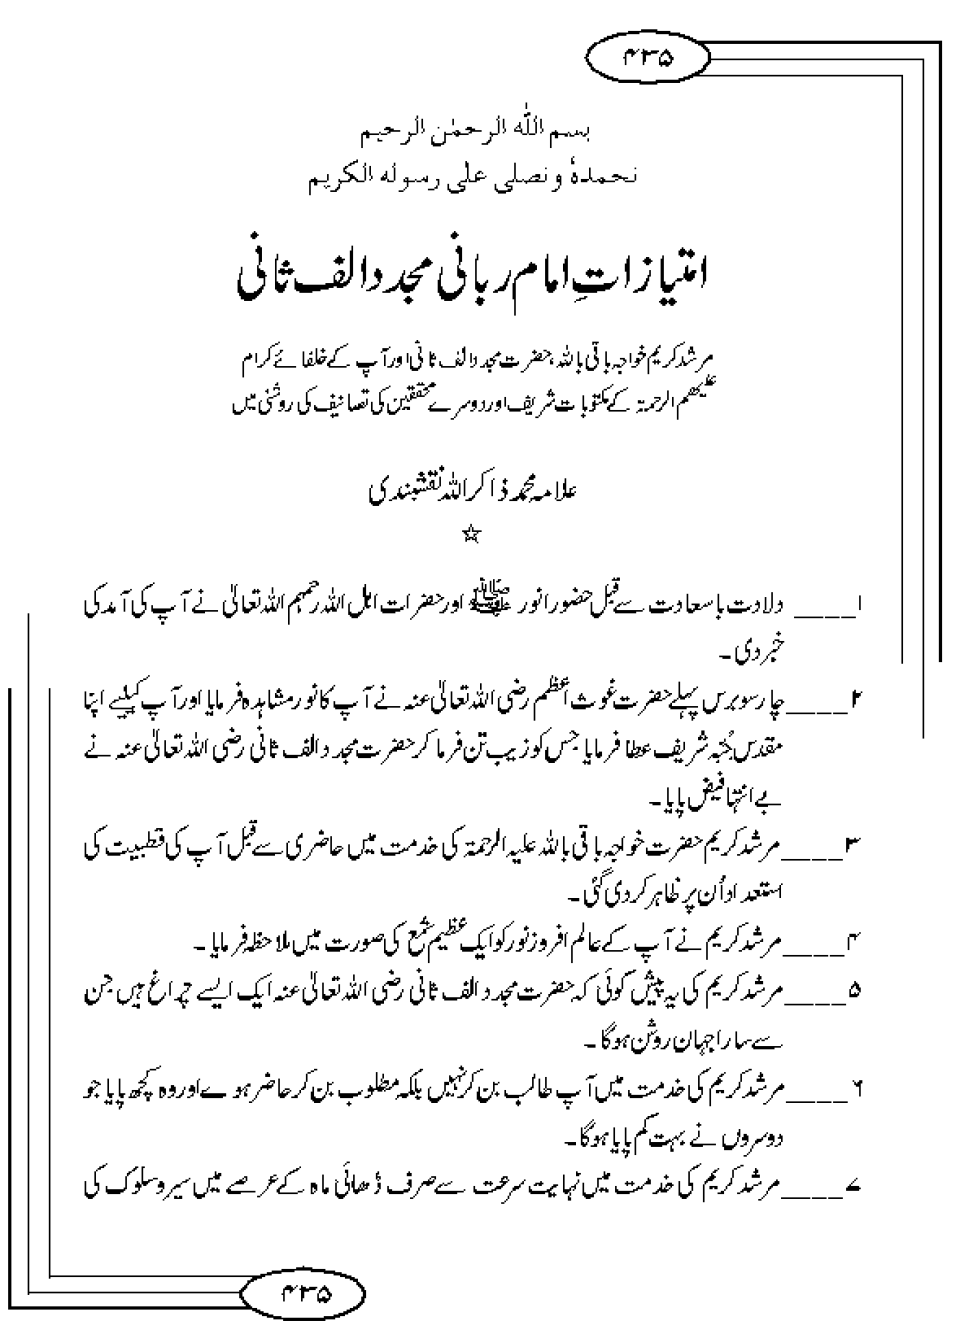 ۴۳۵
بسم اللہ الرحمٰن الرحیم
نحمدہٗ و نصلی علی رسولہ الکریم
امتیازاتِ امام ربانی مجدد الف ثانی
مرشد کریم خواجہ باقی باللہ، حضرت مجدد الف ثانی اور آپ کے خلفائے کرام
علیھم الرحمۃ کے مکتوبات شریف اور دوسرے محققین کی تصانیف کی روشنی میں
علامہ محمد ذاکر اللہ نقشبندی
☆
۱____ ولادت باسعادت سے قبل حضور انور ﷺ اور حضرات اہل اللہ رحمہم اللہ تعالیٰ نے آپ کی آمد کی
خبر دی۔
۲____ چار سو برس پہلے حضرت غوث اعظم رضی اللہ تعالیٰ عنہ نے آپ کا نور مشاہدہ فرمایا اور آپ کیلیے اپنا
مقدس جُبّہ شریف عطا فرمایا جس کو زیب تن فرما کر حضرت مجدد الف ثانی رضی اللہ تعالیٰ عنہ نے
بے انتہا فیض پایا۔
۳____ مرشد کریم حضرت خواجہ باقی باللہ علیہ الرحمۃ کی خدمت میں حاضری سے قبل آپ کی قطبیت کی
استعداد اُن پر ظاہر کر دی گئی۔
۴____ مرشد کریم نے آپ کے عالم افروز نور کو ایک عظیم شمع کی صورت میں ملاحظہ فرمایا۔
۵____ مرشد کریم کی یہ پیش گوئی کہ حضرت مجدد الف ثانی رضی اللہ تعالیٰ عنہ ایک ایسے چراغ ہیں جن
سے سارا جہان روشن ہوگا۔
۶____ مرشد کریم کی خدمت میں آپ طالب بن کر نہیں بلکہ مطلوب بن کر حاضر ہوے اور وہ کچھ پایا جو
دوسروں نے بہت کم پایا ہوگا۔
۷____ مرشد کریم کی خدمت میں نہایت سرعت سے صرف ڈھائی ماہ کے عرصے میں سیر و سلوک کی
۴۳۵